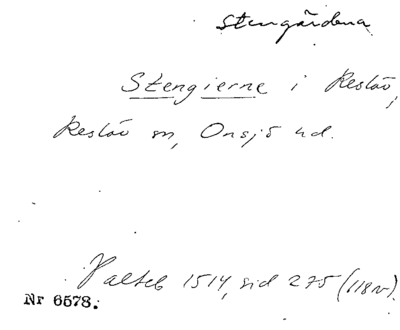 Stengårdena
Stengierne i Reslöv,
Reslöv sn, Onsjö hd.
Palteb 1514, sid 275 (118v).
Nr 6578.